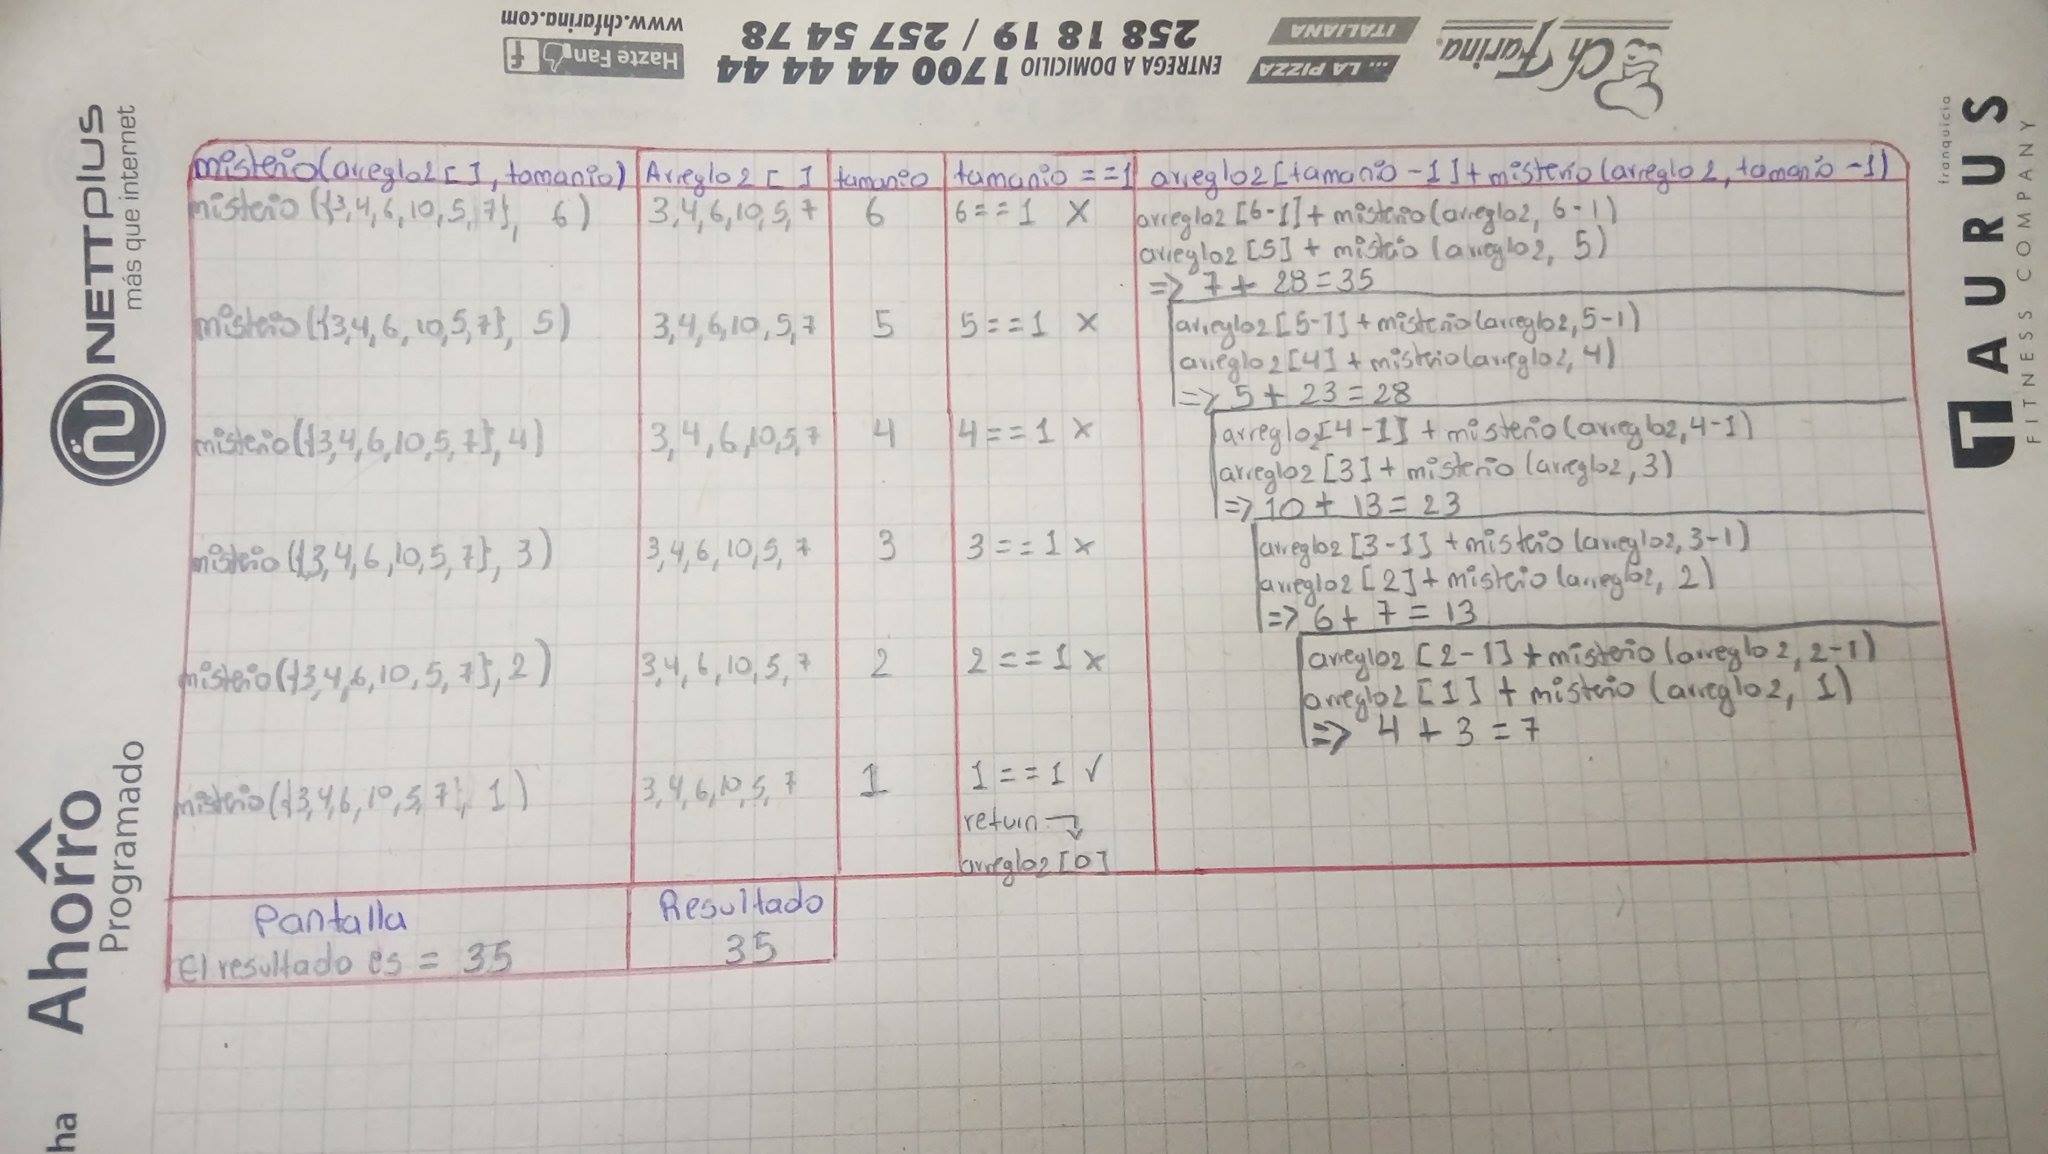 Ch Farina.
... LA PIZZA
ITALIANA
ENTREGA A DOMICILIO 1700 44 44 44
258 18 19 / 257 54 78
Hazte Fan f
www.chfarina.com
NETTPLUS
más que internet
Ahorro
Programado
ha
franquicia
TAURUS
FITNESS COMPANY
misterio(arreglo2[], tamanio) Arreglo2[] tamanio tamanio==1 arreglo2[tamanio-1]+misterio(arreglo2, tamanio-1)
misterio({3,4,6,10,5,7}, 6) 3,4,6,10,5,7 6 6==1 X arreglo2[6-1]+misterio(arreglo2, 6-1)
arreglo2[5]+misterio(arreglo2, 5)
=> 7+28=35
misterio({3,4,6,10,5,7}, 5) 3,4,6,10,5,7 5 5==1 X arreglo2[5-1]+misterio(arreglo2,5-1)
arreglo2[4]+misterio(arreglo2, 4)
=> 5+23=28
misterio({3,4,6,10,5,7},4) 3,4,6,10,5,7 4 4==1 X arreglo2[4-1]+misterio(arreglo2,4-1)
arreglo2[3]+misterio(arreglo2,3)
=> 10+13=23
misterio({3,4,6,10,5,7}, 3) 3,4,6,10,5,7 3 3==1 X arreglo2[3-1]+misterio(arreglo2,3-1)
arreglo2[2]+misterio(arreglo2, 2)
=> 6+7=13
misterio({3,4,6,10,5,7},2) 3,4,6,10,5,7 2 2==1 X arreglo2[2-1]+misterio(arreglo2,2-1)
arreglo2[1]+misterio(arreglo2, 1)
=> 4+3=7
misterio({3,4,6,10,5,7}, 1) 3,4,6,10,5,7 1 1==1 ✓
return
arreglo2[0]
Pantalla Resultado
El resultado es = 35 35